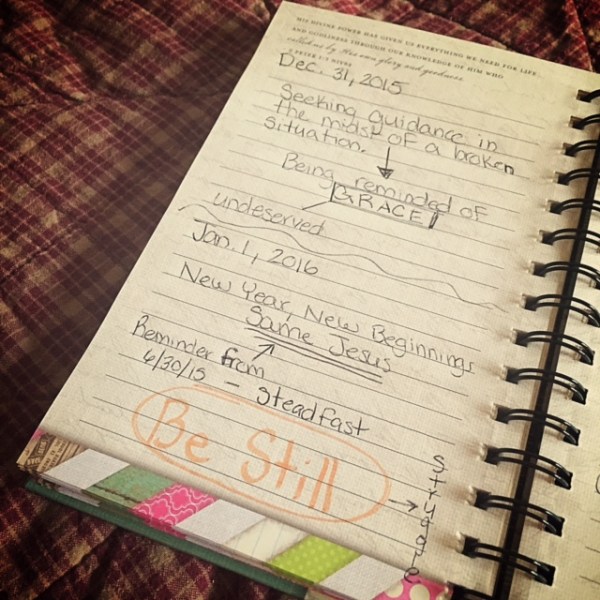 HIS DIVINE POWER HAS GIVEN US EVERYTHING WE NEED FOR LIFE
AND GODLINESS THROUGH OUR KNOWLEDGE OF HIM WHO
called us by His own glory and goodness.
2 PETER 1:3
Dec. 31, 2015
Seeking guidance in
the midst of a broken
situation.
Being reminded of
GRACE!
undeserved
Jan. 1, 2016
New Year, New Beginnings
Same Jesus
Reminder from
6/30/15 - steadfast
Be Still
struggle